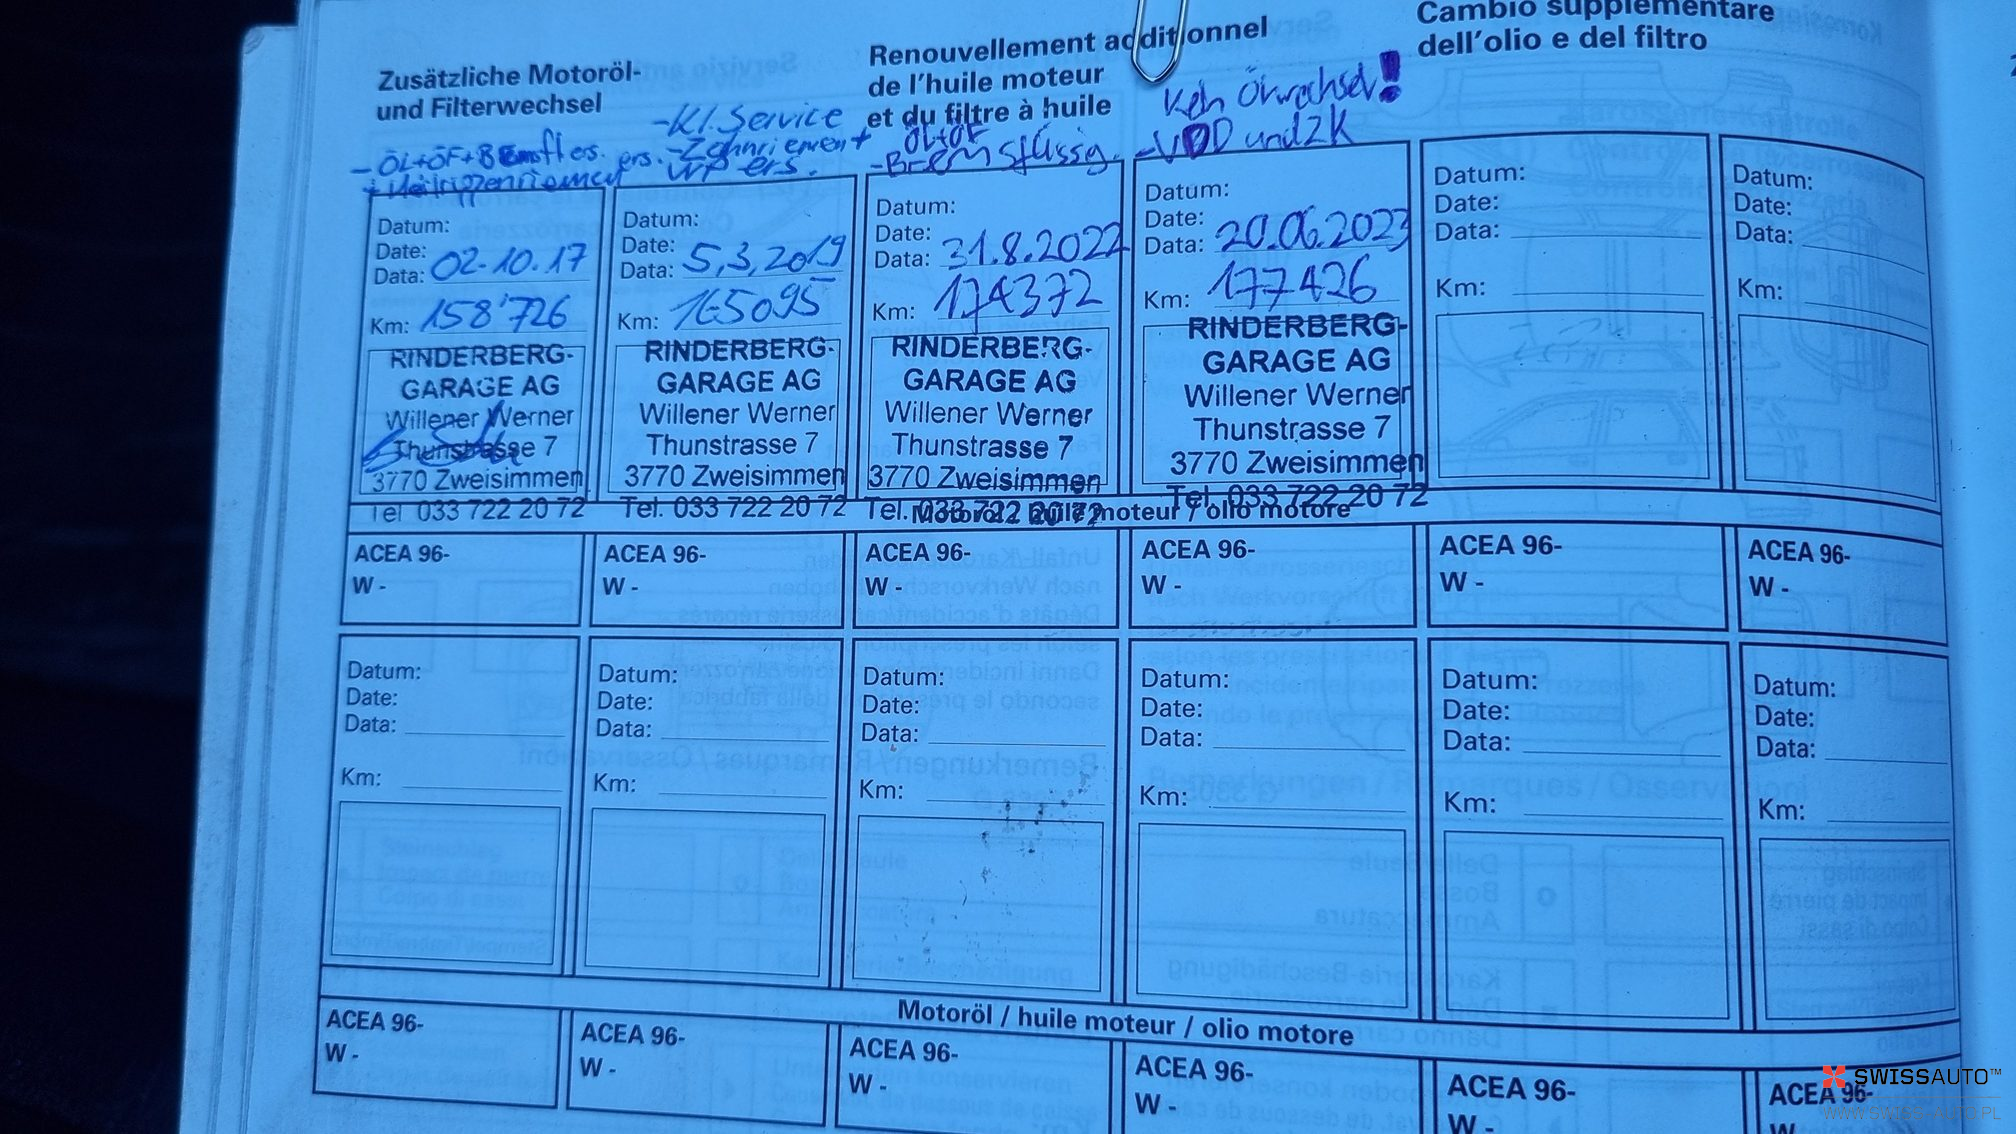 Zusätzliche Motoröl-
und Filterwechsel
Renouvellement additionnel
de l'huile moteur
et du filtre à huile
Cambio supplementare
dell'olio e del filtro
-ÖL+ÖF+Bremsfl ers.
+ Keilrippenriemen ers.
-Kl. Service
-Zahnriemen+
WP ers.
ÖL+ÖF
-Bremsflüssig.
Kein Ölwechsel!
-VDD und ZK
Datum:
Date:
Data: 02.10.17
Km: 158'726
RINDERBERG-
GARAGE AG
Willener Werner
Thunstrasse 7
3770 Zweisimmen
Tel 033 722 20 72
Datum:
Date:
Data: 5.3.2019
Km: 165095
RINDERBERG-
GARAGE AG
Willener Werner
Thunstrasse 7
3770 Zweisimmen
Tel. 033 722 20 72
Datum:
Date:
Data: 31.8.2022
Km: 174372
RINDERBERG-
GARAGE AG
Willener Werner
Thunstrasse 7
3770 Zweisimmen
Tel. 033 722 20 72
Datum:
Date:
Data: 20.06.2023
Km: 177426
RINDERBERG-
GARAGE AG
Willener Werner
Thunstrasse 7
3770 Zweisimmen
Tel. 033 722 20 72
Datum:
Date:
Data:
Km:
Datum:
Date:
Data:
Km:
Motoröl / huile moteur / olio motore
ACEA 96-
W -
ACEA 96-
W -
ACEA 96-
W -
ACEA 96-
W -
ACEA 96-
W -
ACEA 96-
W -
Datum:
Date:
Data:
Km:
Datum:
Date:
Data:
Km:
Datum:
Date:
Data:
Km:
Datum:
Date:
Data:
Km:
Datum:
Date:
Data:
Km:
Datum:
Date:
Data:
Km:
Motoröl / huile moteur / olio motore
ACEA 96-
W -
ACEA 96-
W -
ACEA 96-
W -
ACEA 96-
W -
ACEA 96-
W -
ACEA 96-
W -
SWISSAUTO™
WWW.SWISS-AUTO.PL